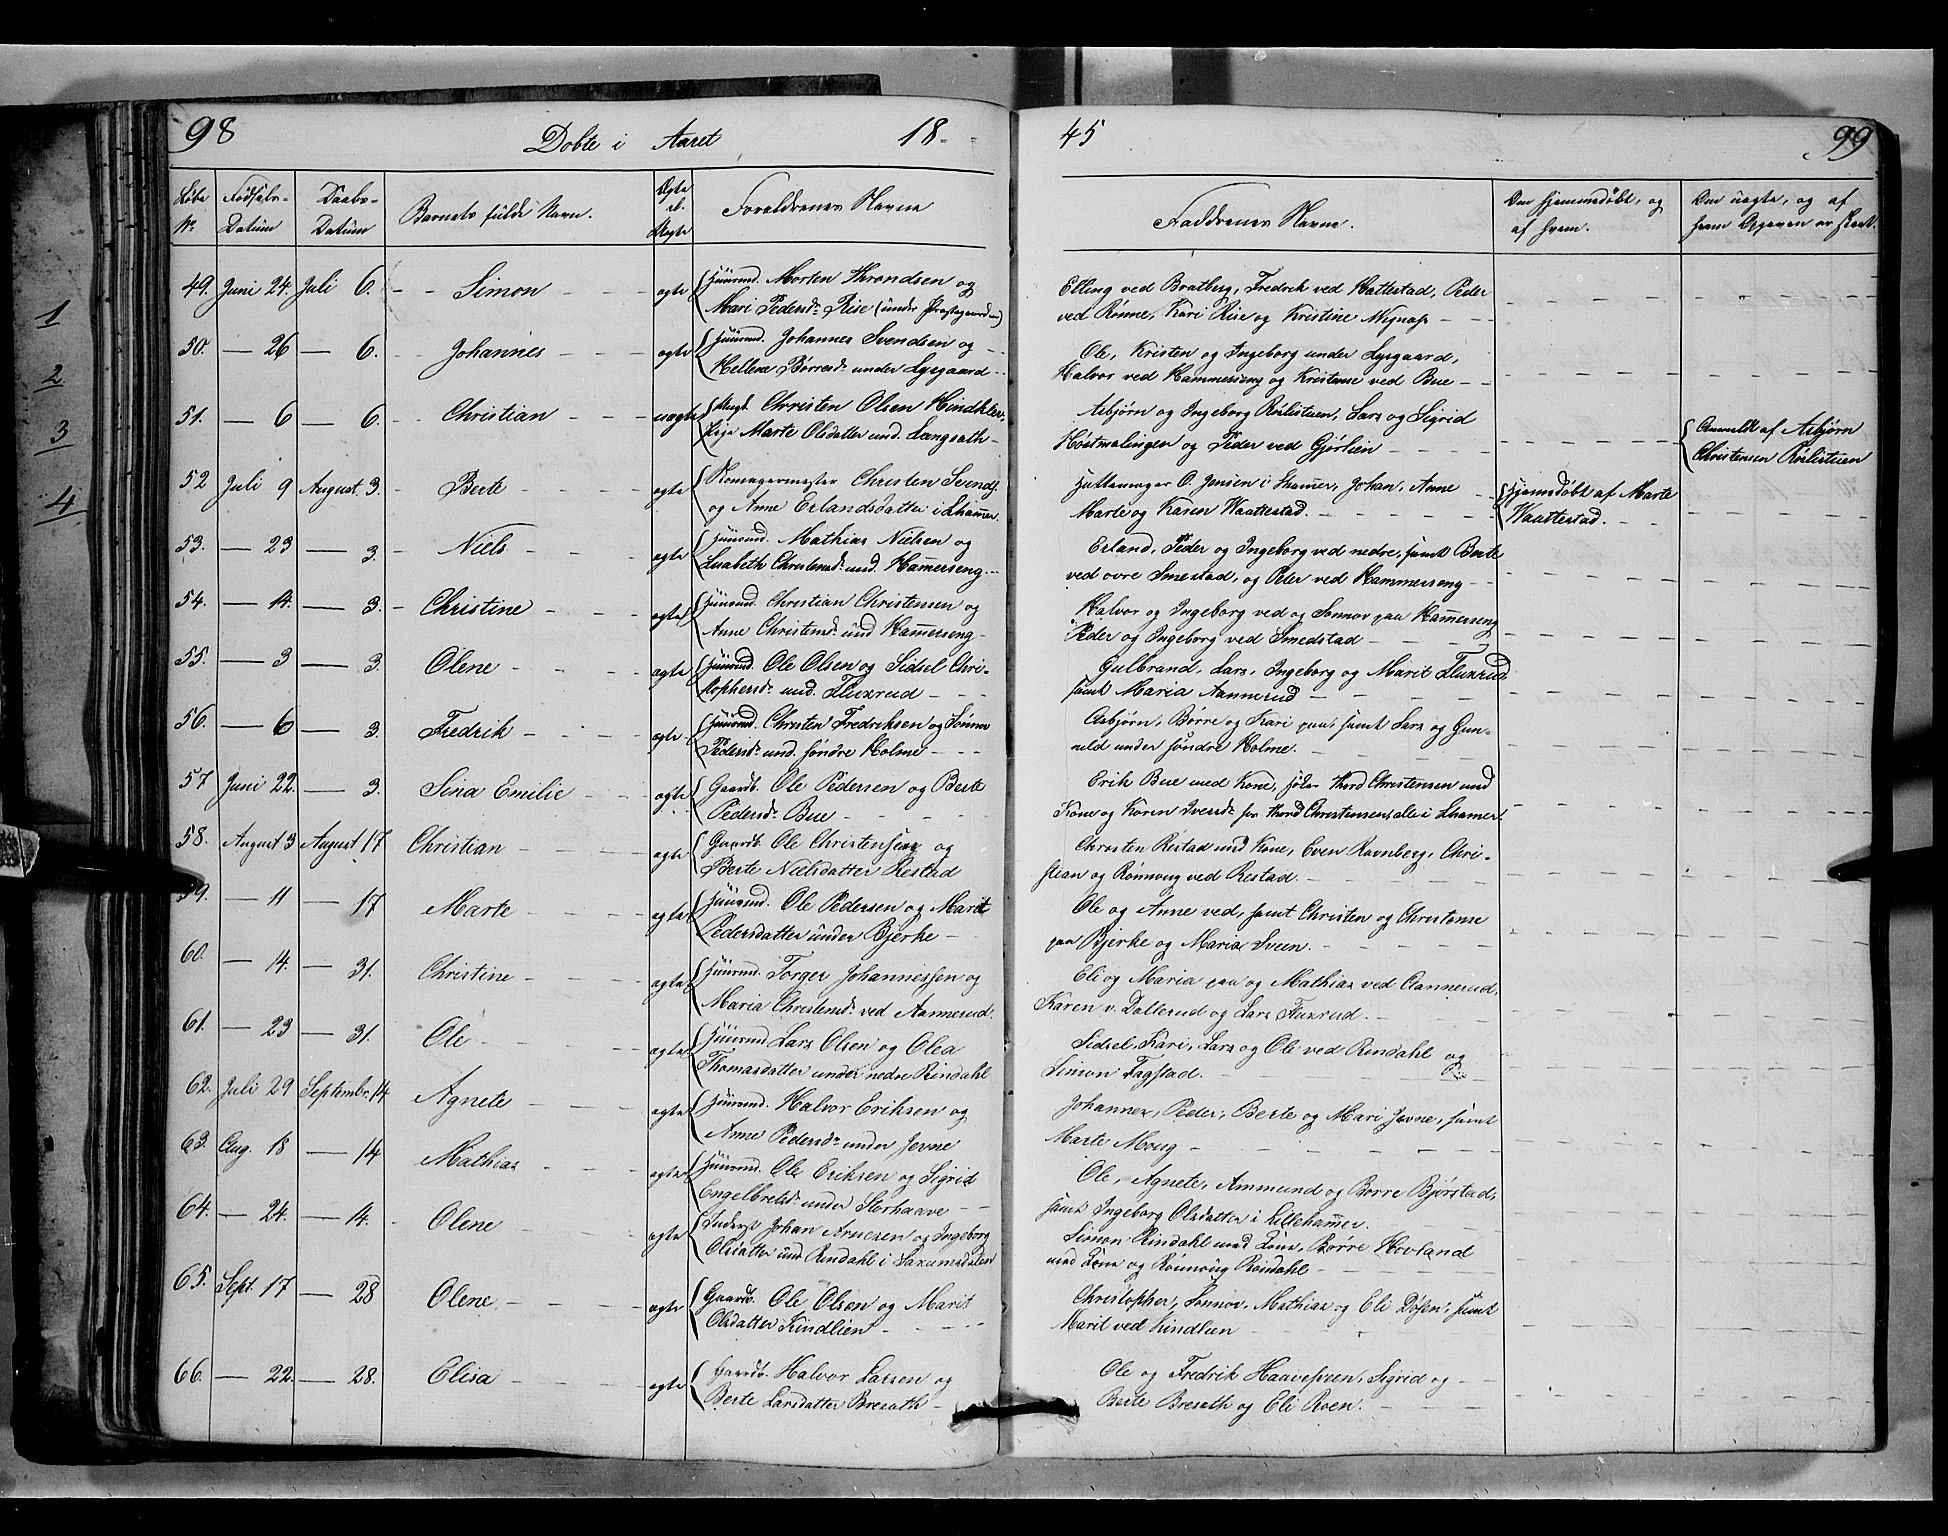 98 Døbte i Aaret 18-
45 99
Løbe No. Fødsels-Datum Daabs-Datum Barnets fulde Navn. Ægte el. Uægte Forældrenes Navne
Faddrenes Navne. Om hjemmedøbt, og af hvem. Om uægte, og af hvem Opgaven er skeet.
1
2
3
4
49. Juni 24. Juli 6. Simon ægte Huusmd. Morten Throndsen og
Mari Pedersdr Rise (under Præstegaarden)
Elling ved Bratberg, Fredrik ved Hattestad, Peder
ved Rønne, Kari Rise og Kristine
50. — 26 — 6. Johannes ægte Huusmd. Johannes Svendsen og
Hellene Børresdr under Lysgaard
Ole, Kristen og Ingeborg under Lysgaard,
Halvor ved Hammerseng og Kristense ved Bue
51. — 6 — 6. Christian uægte Ungk. Christen Olsen Hindklev,
Pige Marte Olsdatter und. Langsæth
Asbjørn og Ingeborg Roilistuen, Lars og Sigrid
Hostmælingen og Peder ved Gjørlien
Anmeldt af Asbjørn
Christensen Roilistuen
52 Juli 9 August. 3. Berte ægte Christen Svends.
og Anne Erlandsdatter i Lhammer.
O. Jensen i Lhammer, Johan, Anne
Marte og Karen Waattestad.
Hjemmedøbt af Marte
Waattestad.
53. — 23 — 3. Niels ægte Huusmd. Mathias Nielsen og
Lisabeth Christensdr und. Hammerseng.
Erland, Peder og Ingeborg ved nedre, samt Berte
ved øvre Smestad, og Peter ved Hammerseng
54. — 14. — 3. Christine ægte Huusmd. Christian Christensen og
Anne Christensdr und Hammerseng
Halvor og Ingeborg ved og Sønnøv paa Hammerseng
Peder og Ingeborg ved Smedstad
55. — 3 — 3. Olene ægte Huusmd. Ole Olsen og Sidsel Chri-
stophersdr und. Fluxrud
Gulbrand, Lars, Ingeborg og Marit Fluxrud
samt Maria Aannerud
56. — 6 — 3. Fredrik ægte Huusmd. Christen Fredriksen og Sønnov
Pedersdr und. søndre Holme
Asbjørn, Børre og Kari paa, samt Lars og Gun-
nild under søndre Holme.
57 Juni 22. — 3. Sina Emilie ægte Gaardb. Ole Pedersen og Berte
Pedersdr Bue
Erik Bue med Kone, Thord Christensen med
Kone og Karen Iversdr Thord Christensen, alle i Lhammer.
58. August 3 August 17 Christian ægte Gaardb. Ole Christensen og
Berte Nielsdatter Restad
Christen Restad med Kone, Even Ravnberg, Chri-
stian og Rønnoug ved Restad.
59. — 11 — 17 Marte ægte Huusmd. Ole Pedersen og Marit
Pedersdatter under Bjerke
Ole og Anne ved, samt Christen og Christense
paa Bjerke og Maria Sveen.
60. — 14. — 31. Christine ægte Huusmd. Torger Johannessen og
Maria Christensdr ved Aannerud.
Eli og Maria paa og Mathias ved Aannerud,
Karen v. Dallerud og Lars Fluxrud.
61. — 23 — 31. Ole ægte Huusmd Lars Olsen og Olea
Thomasdatter under nedre Rindahl
Sidsel, Kari, Lars og Ole ved Rindahl og
Simon Fagstad.
62. Juli 29 Septembr. 14 Agnete ægte Huusmd. Halvor Eriksen og
Anne Pedersdr under Jevne
Johannes, Peder, Berte og Mari Jevne, samt
Marte Moug
63. Aug. 18 — 14 Mathias ægte Huusmd. Ole Eriksen og Sigrid
Engelbretsdr under Storhaave
Ole, Agnete, Ammund og Børre Bjørstad,
samt Ingeborg Olsdatter i Lillehammer.
64. — 24. — 14. Olene ægte Inderst Johan Arnesen og Ingeborg
Olsdatter und Rindahl i Saxumsdalen
Simon Rindahl med Kone, Børre Hovland
med Kone og Rønnoug Rindahl
65. Sept. 17 — 28 Olene ægte Gaardb. Ole Olsen og Marit
Olsdatter Kindlien
Christopher, Sønnøv, Mathias og Eli Døsen, samt
Marit ved Kindlien
66. — 22. — 28. Elisa ægte Gaardb. Halvor Larsen og
Berte Larsdatter Bresæth
Ole og Fredrik Haavesveen, Sigrid og
Berte Bresæth og Eli Roen.